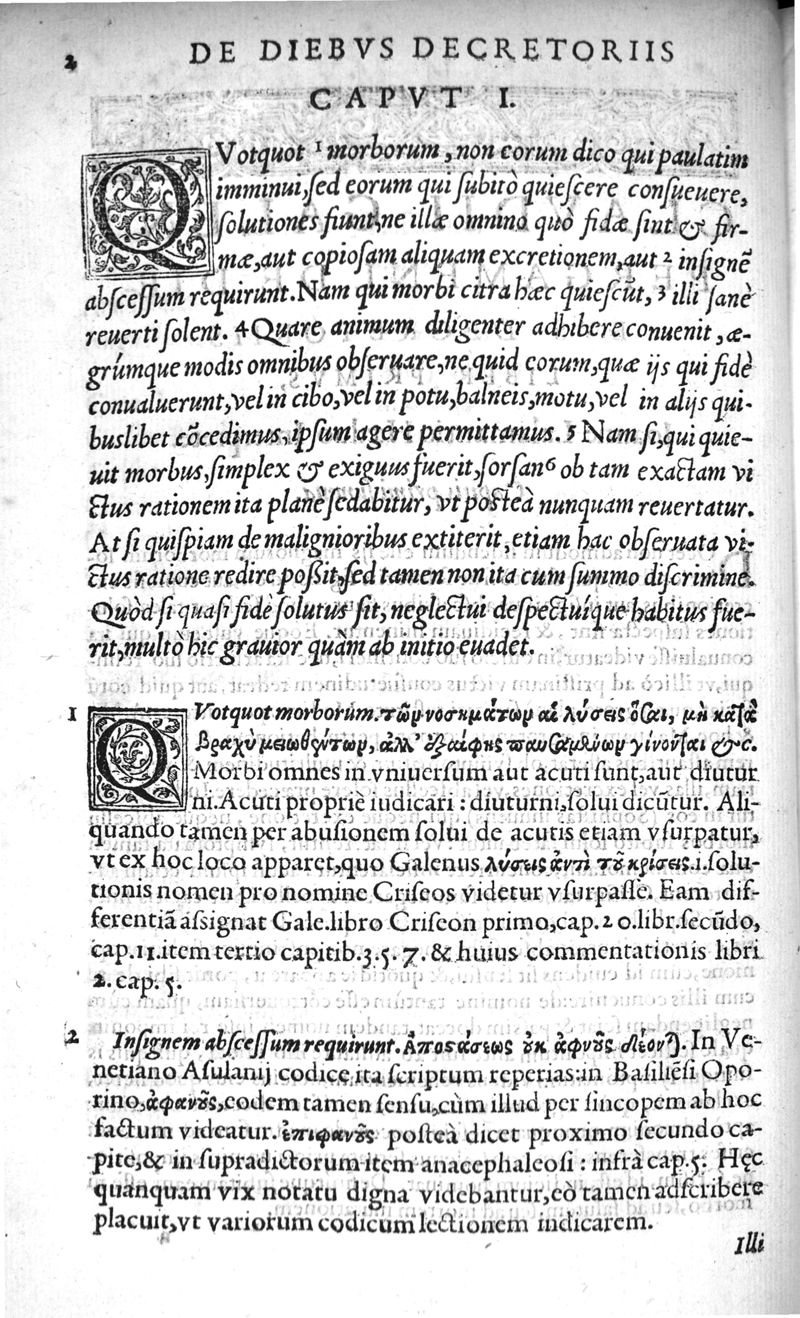 2 DE DIEBVS DECRETORIIS
CAPVT I.
QVotquot 1 morborum, non eorum dico qui paulatim
imminui, sed eorum qui subitò quiescere consueuere,
solutiones fiunt, ne illæ omnino quò fidæ sint & fir-
mæ, aut copiosam aliquam excretionem, aut 2 insignẽ
abscessum requirunt. Nam qui morbi citra hæc quiescũt, 3 illi sanè
reuerti solent. 4 Quare animum diligenter adhibere conuenit, æ-
grúmque modis omnibus obseruare, ne quid eorum, quæ ijs qui fidè
conualuerunt, vel in cibo, vel in potu, balneis, motu, vel in alijs qui-
buslibet cõcedimus, ipsum agere permittamus. 5 Nam si, qui quie-
uit morbus, simplex & exiguus fuerit, forsan 6 ob tam exactam vi
ctus rationem ita planè sedabitur, vt posteà nunquam reuertatur.
At si quispiam de malignioribus extiterit, etiam hac obseruata vi-
ctus ratione redire possit, sed tamen non ita cum summo discrimine.
Quòd si quasi fidè solutus sit, neglectui despectuíque habitus fue-
rit, multò hic grauior quàm ab initio euadet.
1 QVotquot morborum. τῶν νοσημάτων αἱ λύσεις ὅσαι, μὴ κατὰ
βραχὺ μειωθέντων, ἀλλ' ἐξαίφνης παυσαμένων γίνονται &c.
Morbi omnes in vniuersum aut acuti sunt, aut diutur
ni. Acuti propriè iudicari: diuturni, solui dicũtur. Ali-
quando tamen per abusionem solui de acutis etiam vsurpatur,
vt ex hoc loco apparet, quo Galenus λύσεις ἀντὶ τοῦ κρίσεις .i. solu-
tionis nomen pro nomine Criseos videtur vsurpasse. Eam dif-
ferentiã assignat Gale. libro Criseon primo, cap. 20. libr. secũdo,
cap. 11. item tertio capitib. 3. 5. 7. & huius commentationis libri
2. cap. 5.
2 Insignem abscessum requirunt. Ἀποστάσεως οὐκ ἀφνοῦς δέονται. In Ve-
netiano Asulanij codice ita scriptum reperias: in Basiliẽsi Opo-
rino, ἀφανοῦς, eodem tamen sensu, cùm illud per sincopem ab hoc
factum videatur. ἐπιφανοῦς posteà dicet proximo secundo ca-
pite, & in supradictorum item anacephaleosi: infrà cap. 5. Hęc
quanquam vix notatu digna videbantur, eò tamen adscribere
placuit, vt variorum codicum lectionem indicarem.
Illi